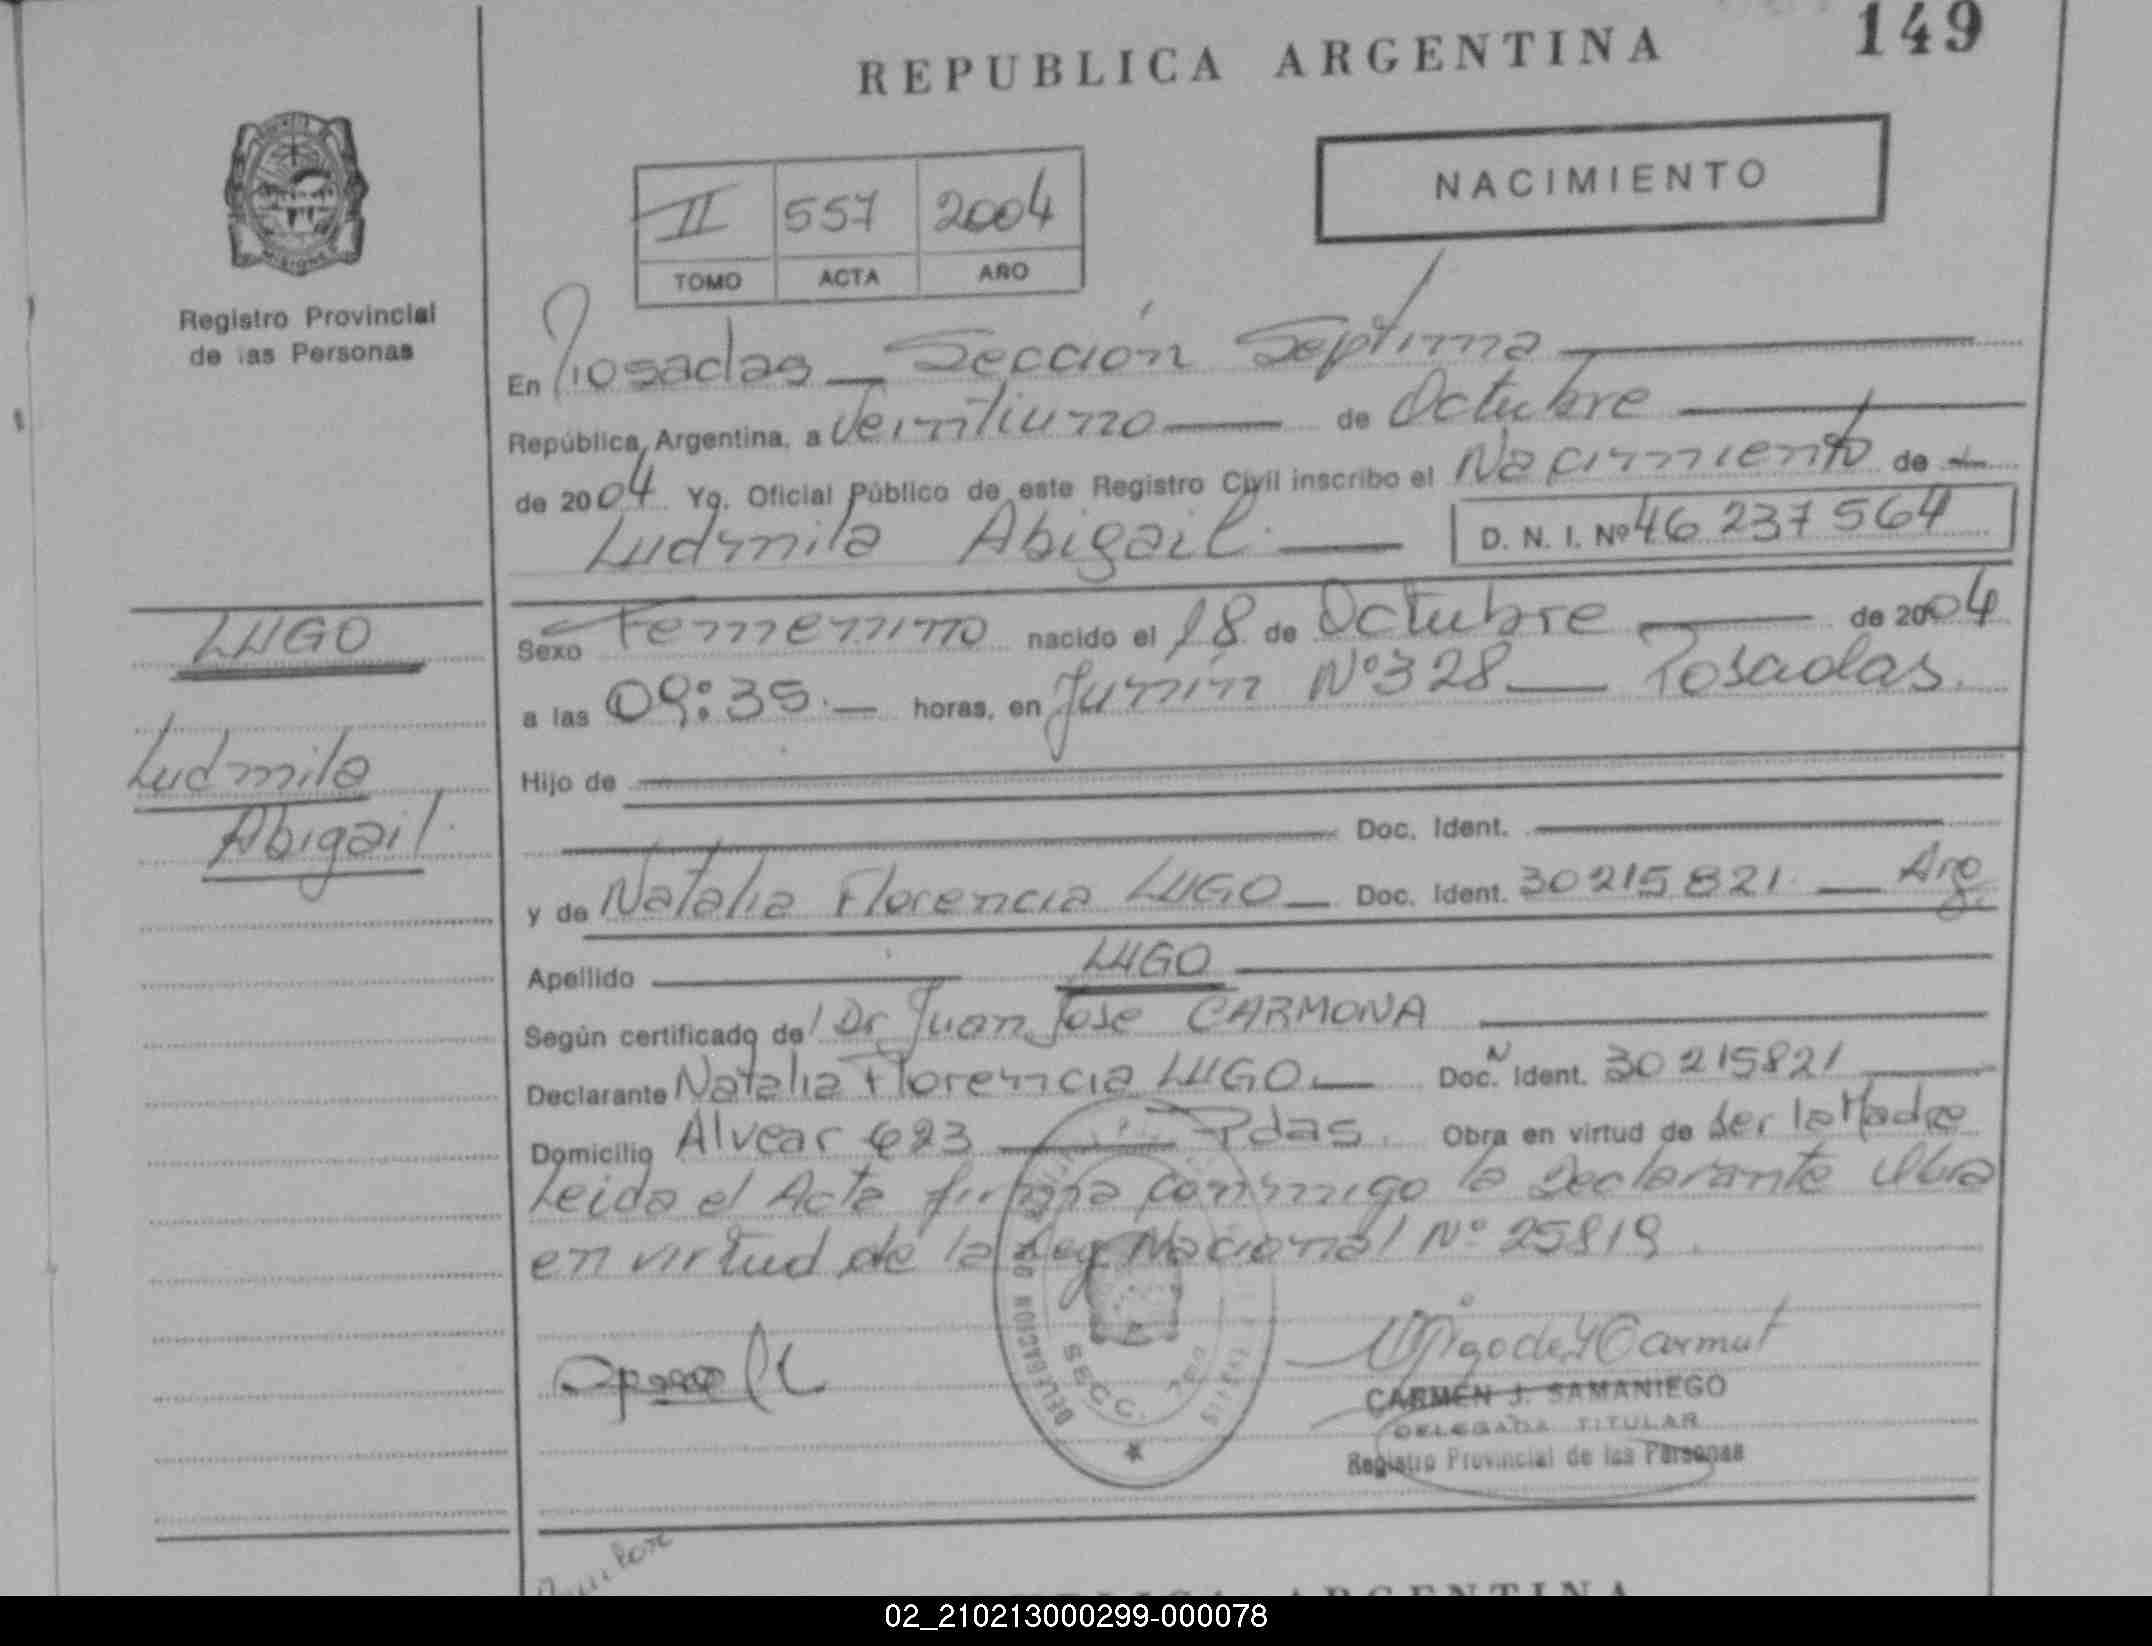 REPUBLICA ARGENTINA
149
Registro Provincial
de las Personas
II 557 2004
TOMO ACTA AÑO
NACIMIENTO
En Posadas Sección Septima
República Argentina, a Veintiuno de Octubre
de 2004 Yo, Oficial Público de este Registro Civil inscribo el Nacimiento de
Ludmila Abigail
D. N. I. Nº 46 237 564
LUGO
Ludmila
Abigail
Sexo Femenino nacido el 18 de Octubre de 2004
a las 09:35 horas, en Junín Nº 328 Posadas.
Hijo de
Doc. Ident.
y de Natalia Florencia LUGO Doc. Ident. 30215821 Arg.
Apellido LUGO
Según certificado del Dr Juan Jose CARMONA
Declarante Natalia Florencia LUGO Doc. N Ident. 30215821
Domicilio Alvear 623 Pdas. Obra en virtud de Ser la Madre
Leida el Acta firma conmigo la Declarante
en virtud de la Ley Nacional Nº 25819
DELEGACION
SECC. 7ma
CARMEN J. SAMANIEGO
DELEGADA TITULAR
Registro Provincial de las Personas
ARGENTINA
02_210213000299-000078